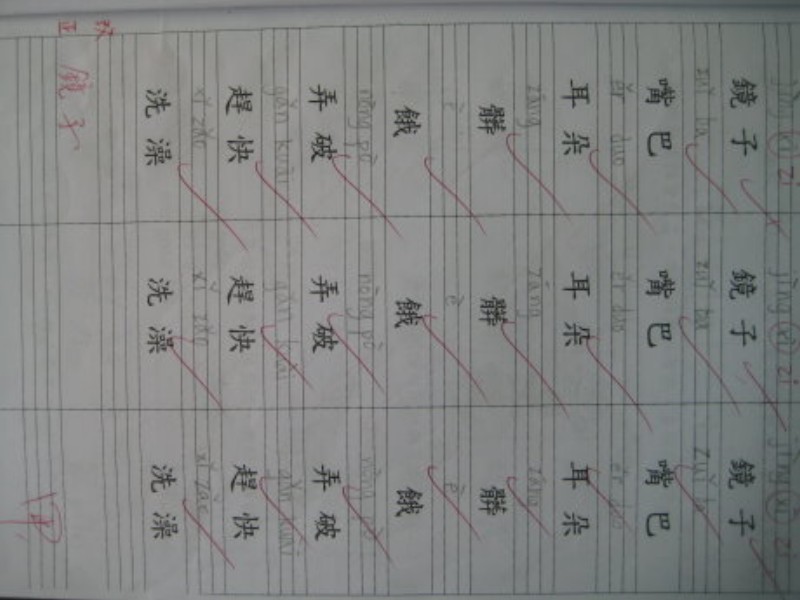 jìng zi jìng zi jìng zi
鏡子 鏡子 鏡子
zuǐ ba zuǐ ba zuǐ ba
嘴巴 嘴巴 嘴巴
ěr duo ěr duo ěr duo
耳朵 耳朵 耳朵
zāng zāng zāng
髒 髒 髒
è è è
餓 餓 餓
nòng pò nòng pò nòng pò
弄破 弄破 弄破
gǎn kuài gǎn kuài gǎn kuài
趕快 趕快 趕快
xǐ zǎo xǐ zǎo xǐ zǎo
洗澡 洗澡 洗澡
改正
鏡子